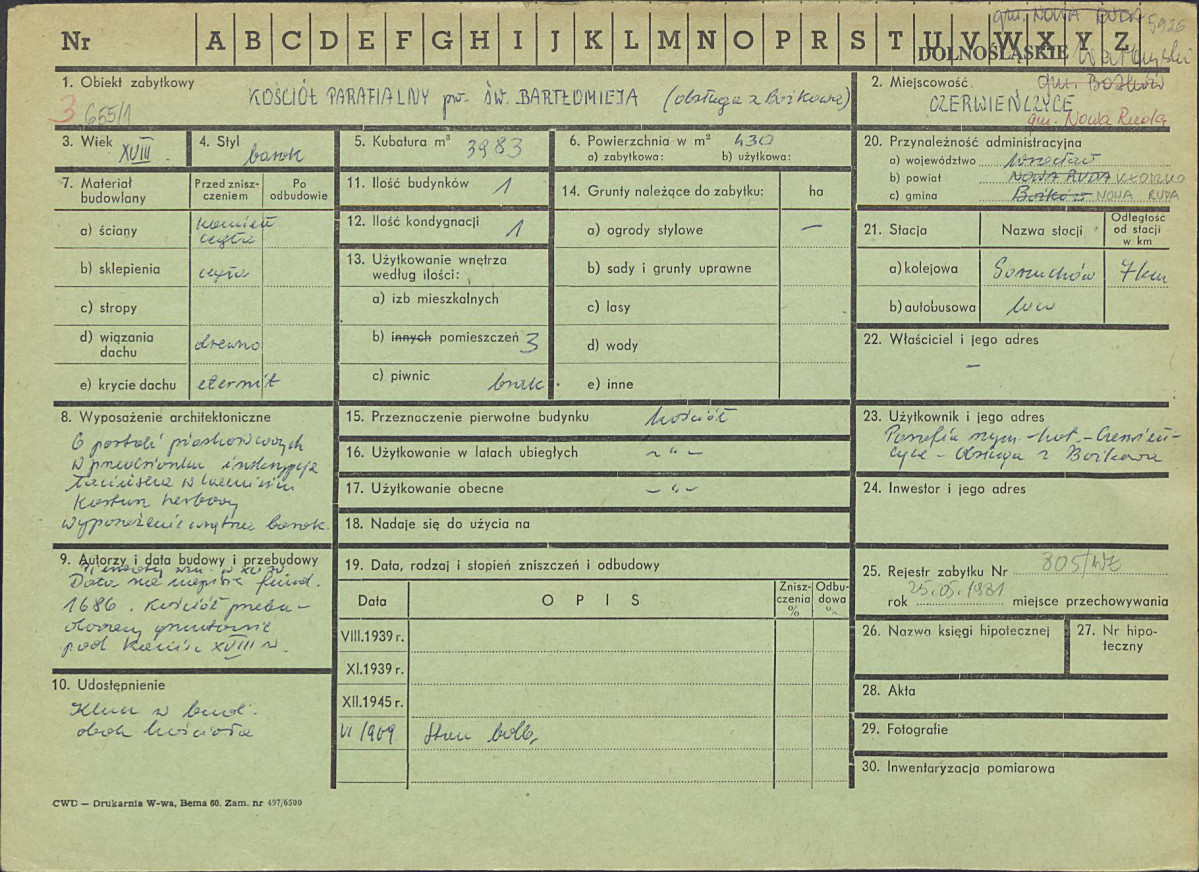 gm. NOWA RUDA 5926
Nr A B C D E F G H I J K L M N O P R S T U V W X Y Z
DOLNOŚLĄSKIE
1. Obiekt zabytkowy
KOŚCIÓŁ PARAFIALNY pw. ŚW. BARTŁOMIEJA (obsługa z Bożkowa)
3 655/1
2. Miejscowość gm. Bożków
CZERWIEŃCZYCE
gm. Nowa Ruda
3. Wiek XVIII
4. Styl barok
5. Kubatura m³ 3983
6. Powierzchnia w m² 430
a) zabytkowa: b) użytkowa:
20. Przynależność administracyjna
a) województwo Wrocław
b) powiat NOWA RUDA KŁODZKO
c) gmina Bożków NOWA RUDA
7. Materiał budowlany
Przed znisz-
czeniem
Po
odbudowie
a) ściany kamień
cegła
b) sklepienia cegła
c) stropy
d) wiązania
dachu drewno
e) krycie dachu eternit
11. Ilość budynków 1
12. Ilość kondygnacji 1
13. Użytkowanie wnętrza
według ilości:
a) izb mieszkalnych
b) innych pomieszczeń 3
c) piwnic brak
14. Grunty należące do zabytku: ha
a) ogrody stylowe —
b) sady i grunty uprawne
c) lasy
d) wody
e) inne
21. Stacja Nazwa stacji
Odległość
od stacji
w km
a) kolejowa 7 km
b) autobusowa
22. Właściciel i jego adres
—
8. Wyposażenie architektoniczne
6 portali piaskowcowych
w przedsionku inskrypcja
łacińska w kamieniu
Kartusz herbowy
wyposażenie wnętrza barok.
15. Przeznaczenie pierwotne budynku kościół
16. Użytkowanie w latach ubiegłych – " –
17. Użytkowanie obecne – " –
18. Nadaje się do użycia na
23. Użytkownik i jego adres
Parafia rzym.-kat. - Czerwień-
czyce - obsługa z Bożkowa
24. Inwestor i jego adres
9. Autorzy i data budowy i przebudowy
w XIV w
Data na
1686. Kościół przebu-
dowany gruntownie
pod koniec XVIII w.
19. Data, rodzaj i stopień zniszczeń i odbudowy
Data OPIS
Znisz-
czenia
%
Odbu-
dowa
%
VIII.1939 r.
XI.1939 r.
XII.1945 r.
Stan dob.
25. Rejestr zabytku Nr 805/WŁ
rok 25.05.1981 miejsce przechowywania
26. Nazwa księgi hipotecznej
27. Nr hipo-
teczny
28. Akta
29. Fotografie
30. Inwentaryzacja pomiarowa
10. Udostępnienie
Klucz w bud.
obok kościoła
CWD — Drukarnia W-wa, Bema 60. Zam. nr 497/6500